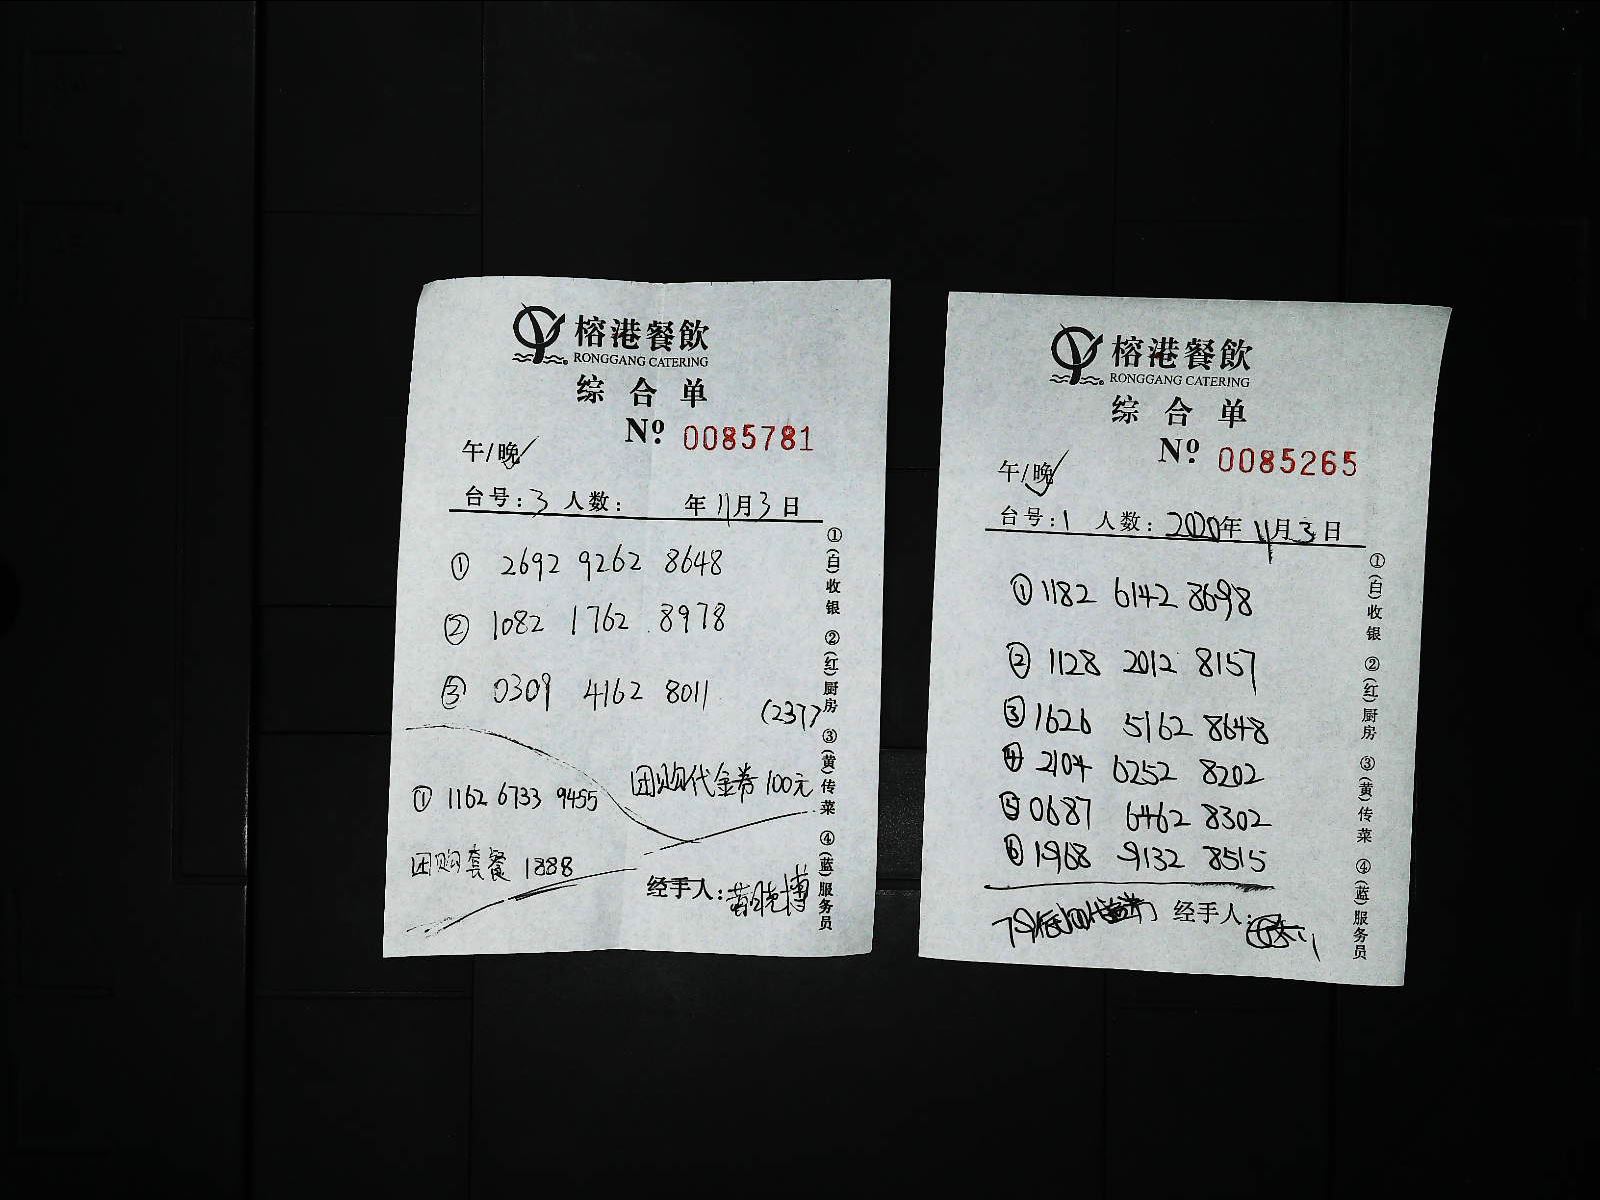 榕港餐飲
RONGGANG CATERING
综合单
Nº 0085781
午/晚✓
台号:3 人数: 年11月3日
① 2692 9262 8648
② 1082 1762 8978
③ 0309 4162 8011
(237)
团购代金券100元
① 1162 6733 9455
团购套餐 1888
经手人:黄晓博
①(白)收银 ②(红)厨房 ③(黄)传菜 ④(蓝)服务员
榕港餐飲
RONGGANG CATERING
综合单
Nº 0085265
午/晚✓
台号:1 人数: 2020年11月3日
① 1182 6142 8698
② 1128 2012 8157
③ 1626 5162 8648
④ 2104 6252 8202
⑤ 0687 6462 8302
⑥ 1968 9132 8515
经手人:
①(白)收银 ②(红)厨房 ③(黄)传菜 ④(蓝)服务员